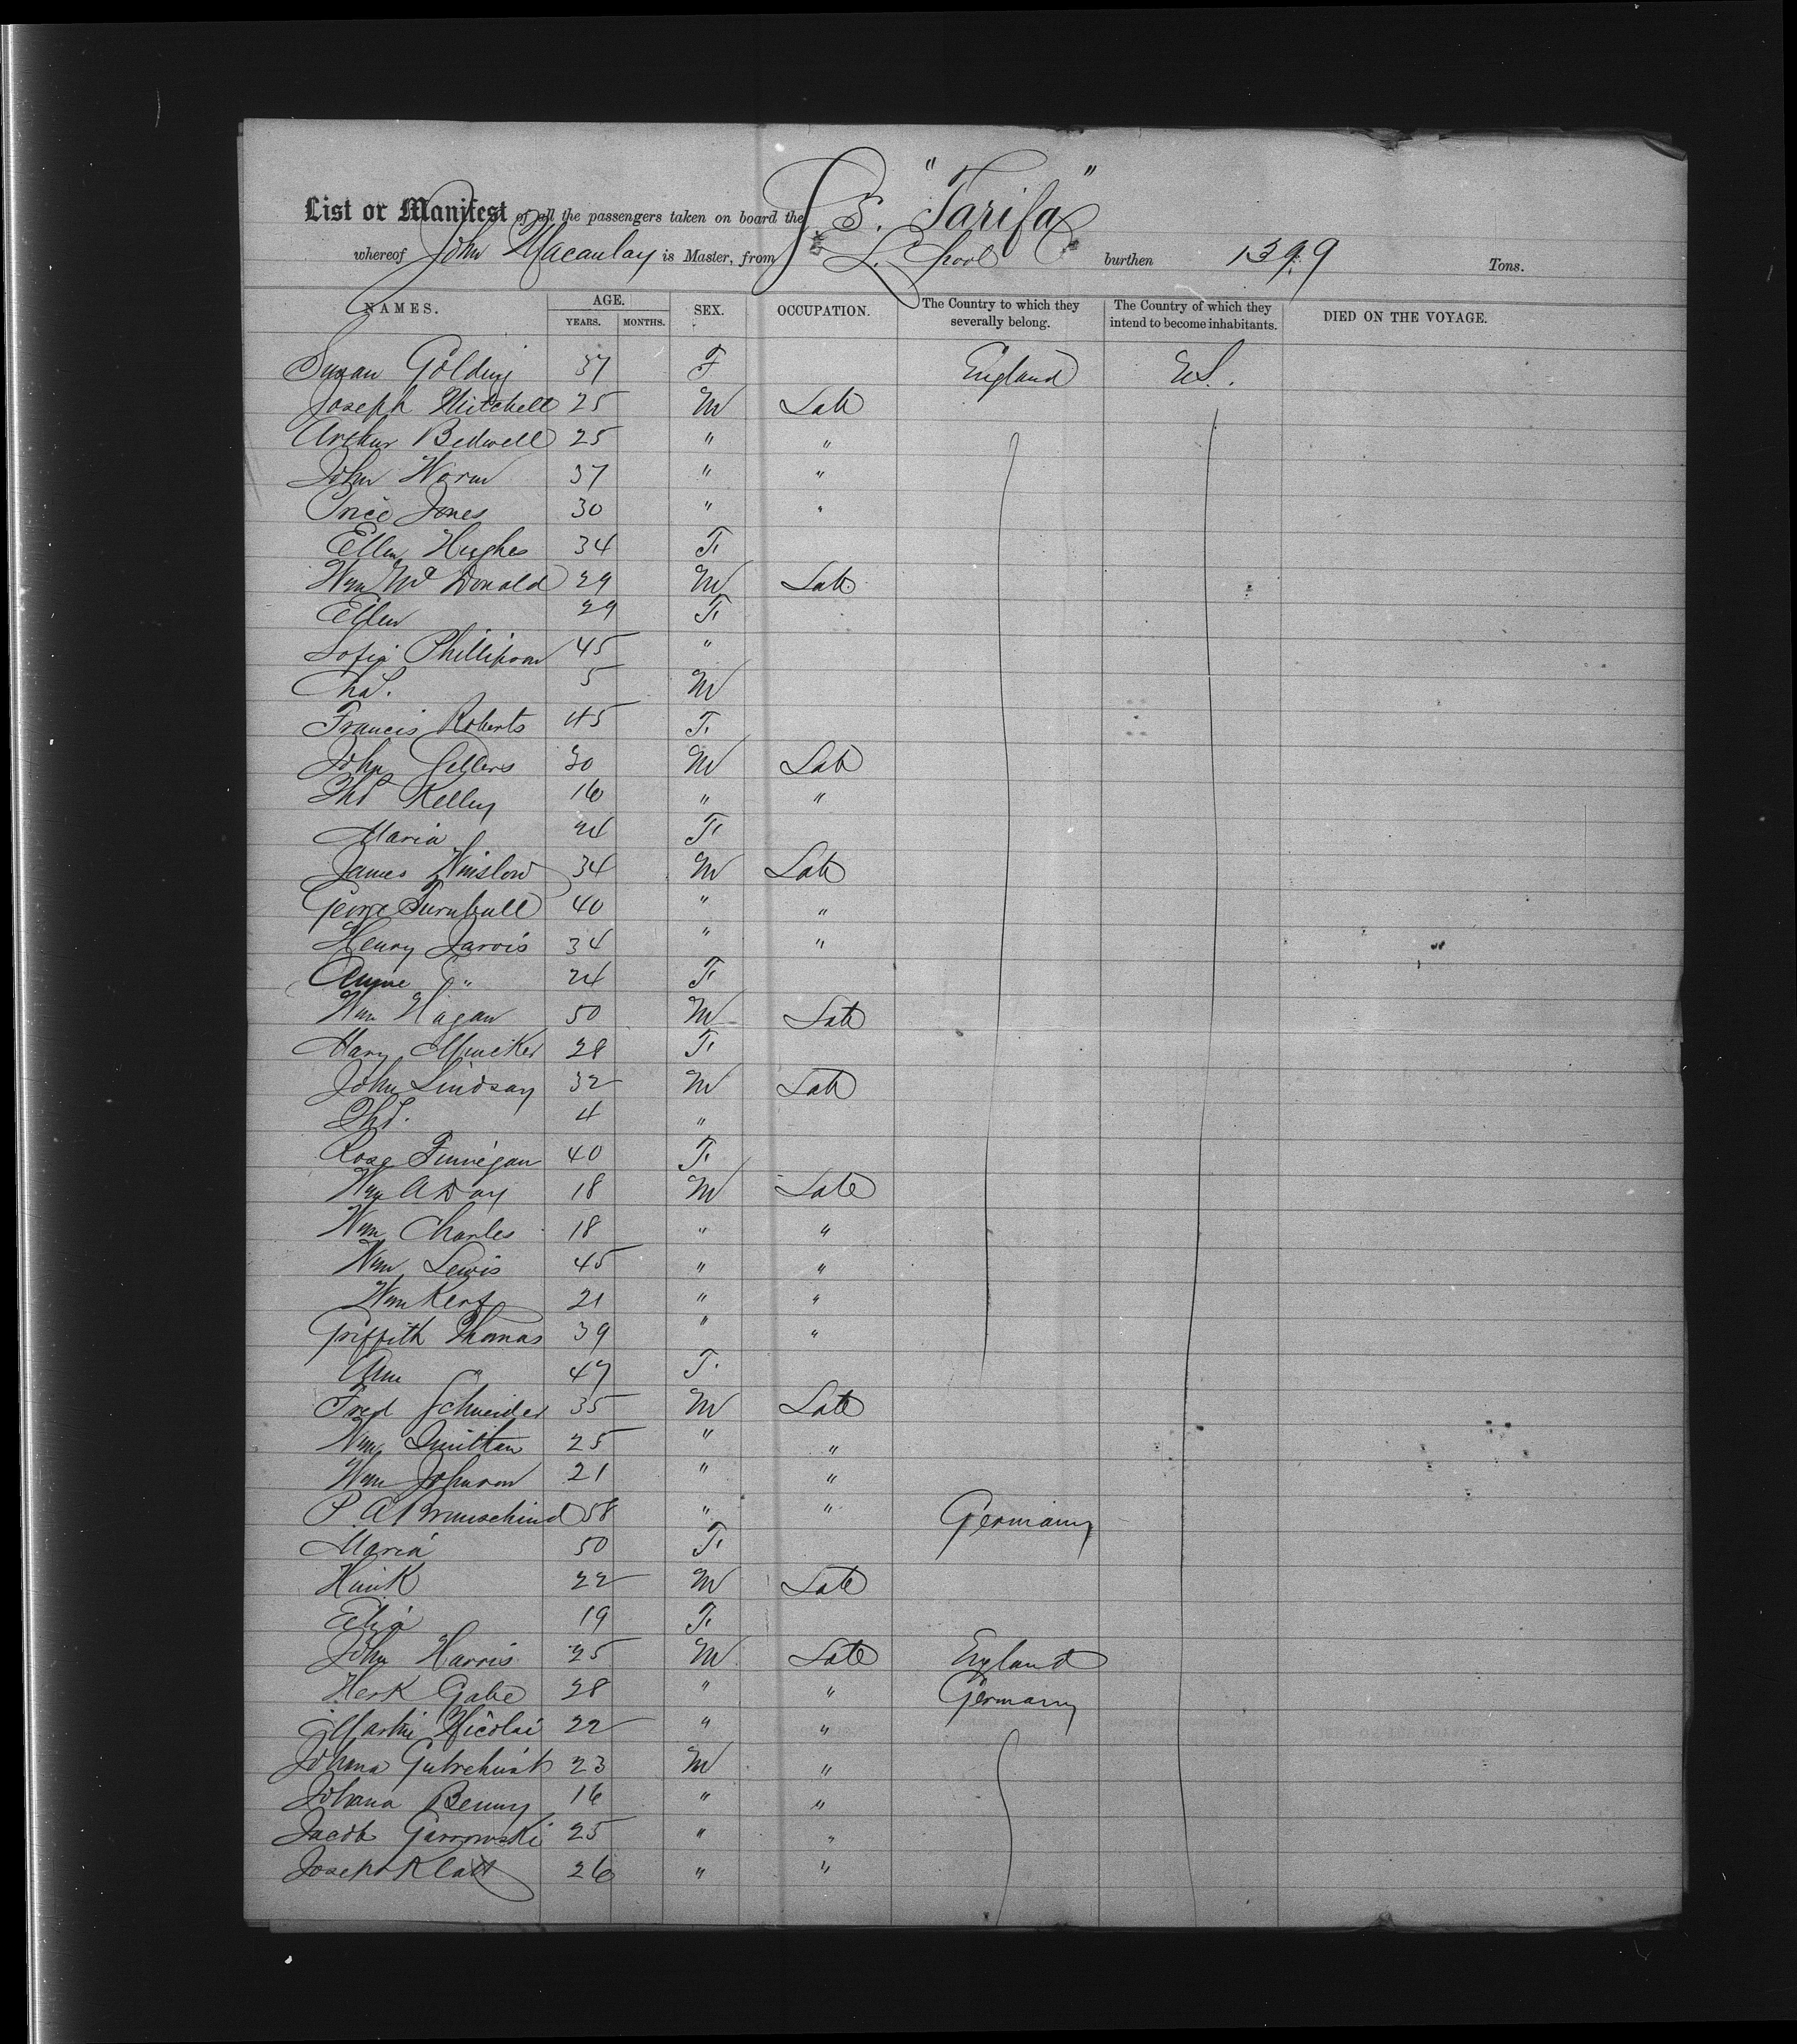 List or Manifest of all the passengers taken on board the S.S. "Tarifa"
whereof John Macaulay is Master, from L.pool burthen 1399 Tons.
NAMES. AGE. YEARS. MONTHS. SEX. OCCUPATION. The Country to which they severally belong. The Country of which they intend to become inhabitants. DIED ON THE VOYAGE.
Susan Golding 37 F England U.S.
Joseph Mitchell 25 M Lab
Arthur Bedwell 25 " "
John Worm 37 " "
Price Jones 30 " "
Ellen Hughes 34 F
Wm McDonald 29 M Lab
Ellen 29 F
Sofia Phillipson 45 "
Chas. 5 M
Francis Roberts 45 F
John Sellers 30 M Lab
Thos Kelley 16 " "
Maria 24 F
James Winslow 34 M Lab
George Turnbull 40 " "
Henry Jarvis 34 " "
Anne " 24 F
Wm Hagan 50 M Lab
Mary 28 F
John Lindsay 32 M Lab
Thos. 4 "
Rose Finnegan 40 F
Wm A Day 18 M Lab
Wm Charles 18 " "
Wm Lewis 45 " "
Wm Kerf 21 " "
Griffith Thomas 39 " "
Ann " 47 F
Fred Schneider 35 M Lab
Wm Quittan 25 " "
Wm Johnson 21 " "
P. A. 58 " " Germany
Maria 50 F
22 M Lab
19 F
John Harris 25 M Lab England
Herk Gabe 28 " " Germany
Martin Nicolai 22 " "
Johana 23 M "
Johana Benny 16 " "
Jacob 25 " "
Joseph Klatt 26 " "